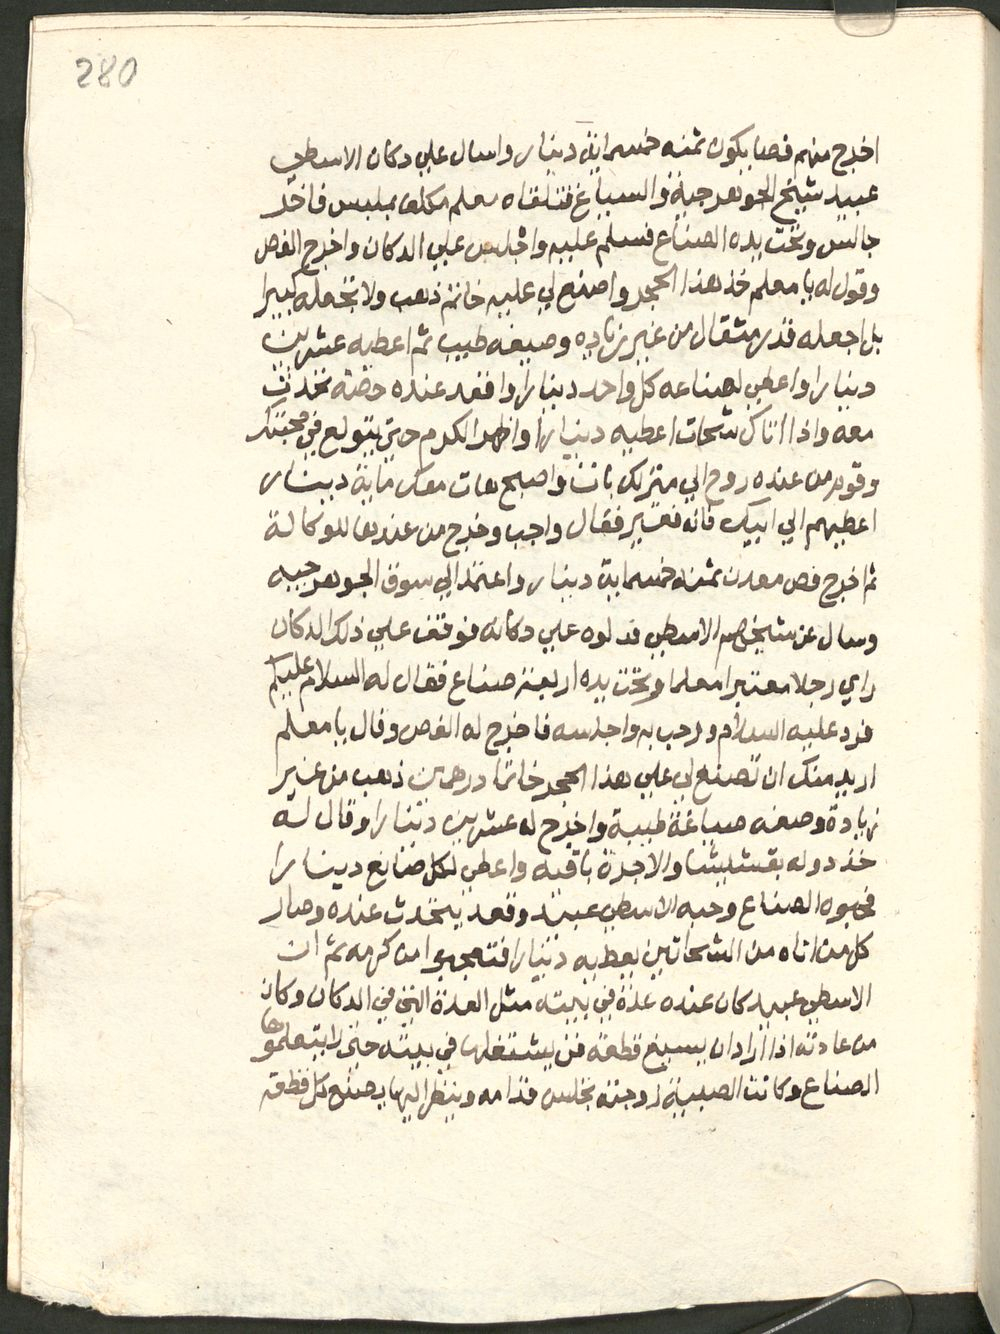 280
اخرج منهم فصا يكون ثمنه خمسماية دينار واسال علي دكان الاسطي
عبيد شيخ الجوهرجية والسباغ فتلقاه معلم مكلف بملبس فاخر
جالس وتحت يده الصناع فسلم عليه واجلس علي الدكان واخرج الفص
وقول له يا معلم خذ هذا الحجر واصنع لي عليه خاتم ذهب ولا تجعله كبيرا
بل اجعله قدر مثقال من غير زياده وصيغه طيب ثم اعطيه عشرين
دينارا واعطي لصناعه كل واحد دينارا واقعد عنده حصة تحدث
معه واذا اتاك شحات اعطيه دينارا واظهر الكرم حتي يتولع في محبتك
وقوم من عنده روح الي منزلك بات واصبح هات معك ماية دينار
اعطيهم الي ابيك فانه فقير فقال واجب وخرج من عندها للوكالة
ثم اخرج فص معدن ثمنه خمسماية دينار واعتمد الي سوق الجوهرجيه
وسال عن شيخهم الاسطي فدلوه علي دكانه فوقف علي ذلك الدكان
راي رجلا معتبرا معلما وتحت يده اربعة صناع فقال له السلام عليكم
فرد عليه السلام ورحب به واجلسه فاخرج له الفص وقال يا معلم
اريد منك ان تصنع لي علي هذا الحجر خاتما درهمين ذهب من غير
زيادة وصغه صياغة طيبة واخرج له عشرين دينارا وقال له
خذ دوله بقشيشا والاجرة باقيه واعطي لكل صانع دينارا
فحبوه الصناع وحبه الاسطي عبيد وقعد يتحدث عنده وصار
كل من اتاه من الشحاتين يعطيه دينارا فتعجبوا من كرمه ثم ان
الاسطي عبيد كان عنده عدة في بيته مثل العدة التي في الدكان وكان
من عادته اذا اراد ان يسيغ قطعة فن يشتغلها في بيته حتي لا يتعلموها
الصناع وكانت الصبية زوجته تجلس قدامه وينظر اليها يصنع كل قطعة